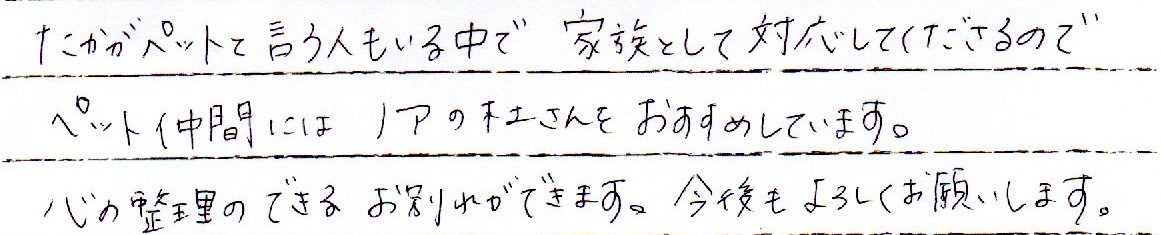 たかがペットと言う人もいる中で 家族として対応してくださるので
ペット仲間には ノアの杜さんを おすすめしています。
心の整理のできる お別れができます。今後もよろしくお願いします。